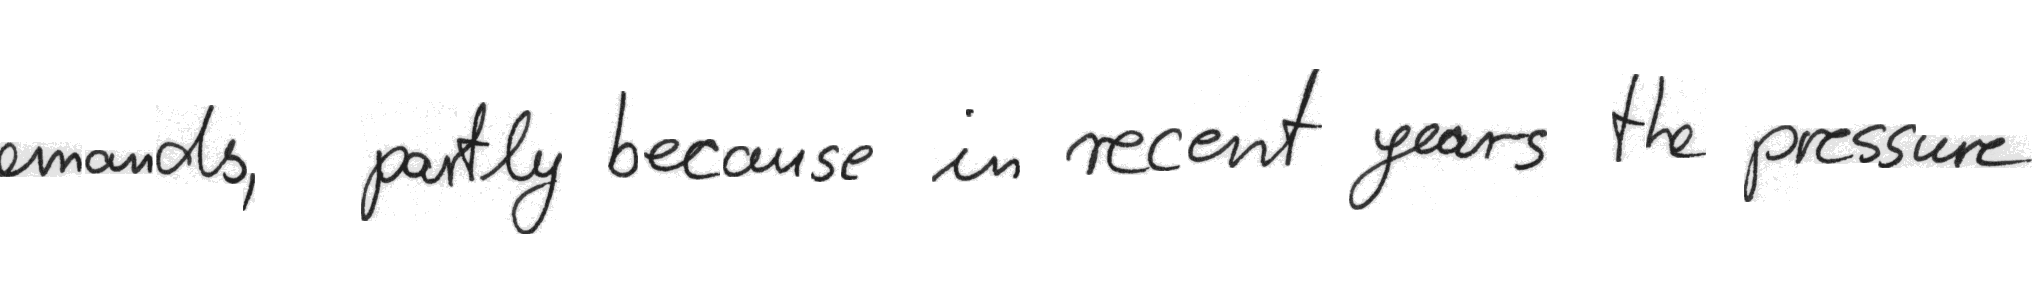 emands, partly because in recent years the pressure